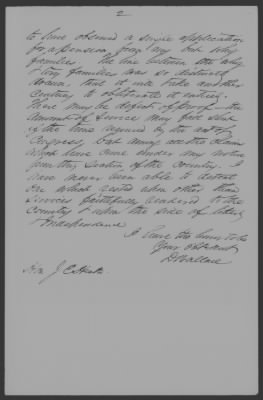 2
to have observed a single application
for a pension from any but Whig
families. The line between the Whig
& Tory families was so distinctly
drawn that it will take another
Century to obliterate it entirely.
There may be defect of proof — the
amount of service may fall short
of the time required by the act of
Congress, but among all the claims
which have come under my notice
from this section of the country, I
have never been able to detect
one which rested upon other than
services faithfully rendered to the
Country & upon the side of liberty
& Independence
I have the honor to be
Your Obt Servt
D Wallace
Hon J E Heath